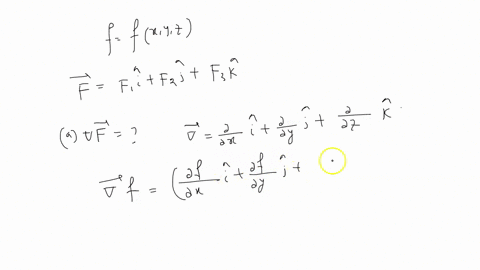 f = f(x,y,z)
F⃗ = F₁ î + F₂ ĵ + F₃ k̂
(a) ∇F⃗ = ? ∇⃗ = ∂/∂x î + ∂/∂y ĵ + ∂/∂z k̂
∇⃗ f = (∂f/∂x î + ∂f/∂y ĵ +